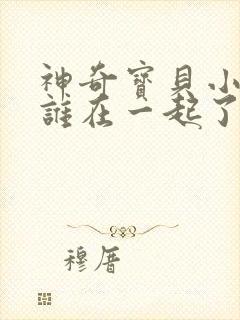 神奇寶貝小
誰在一起了
穆厝